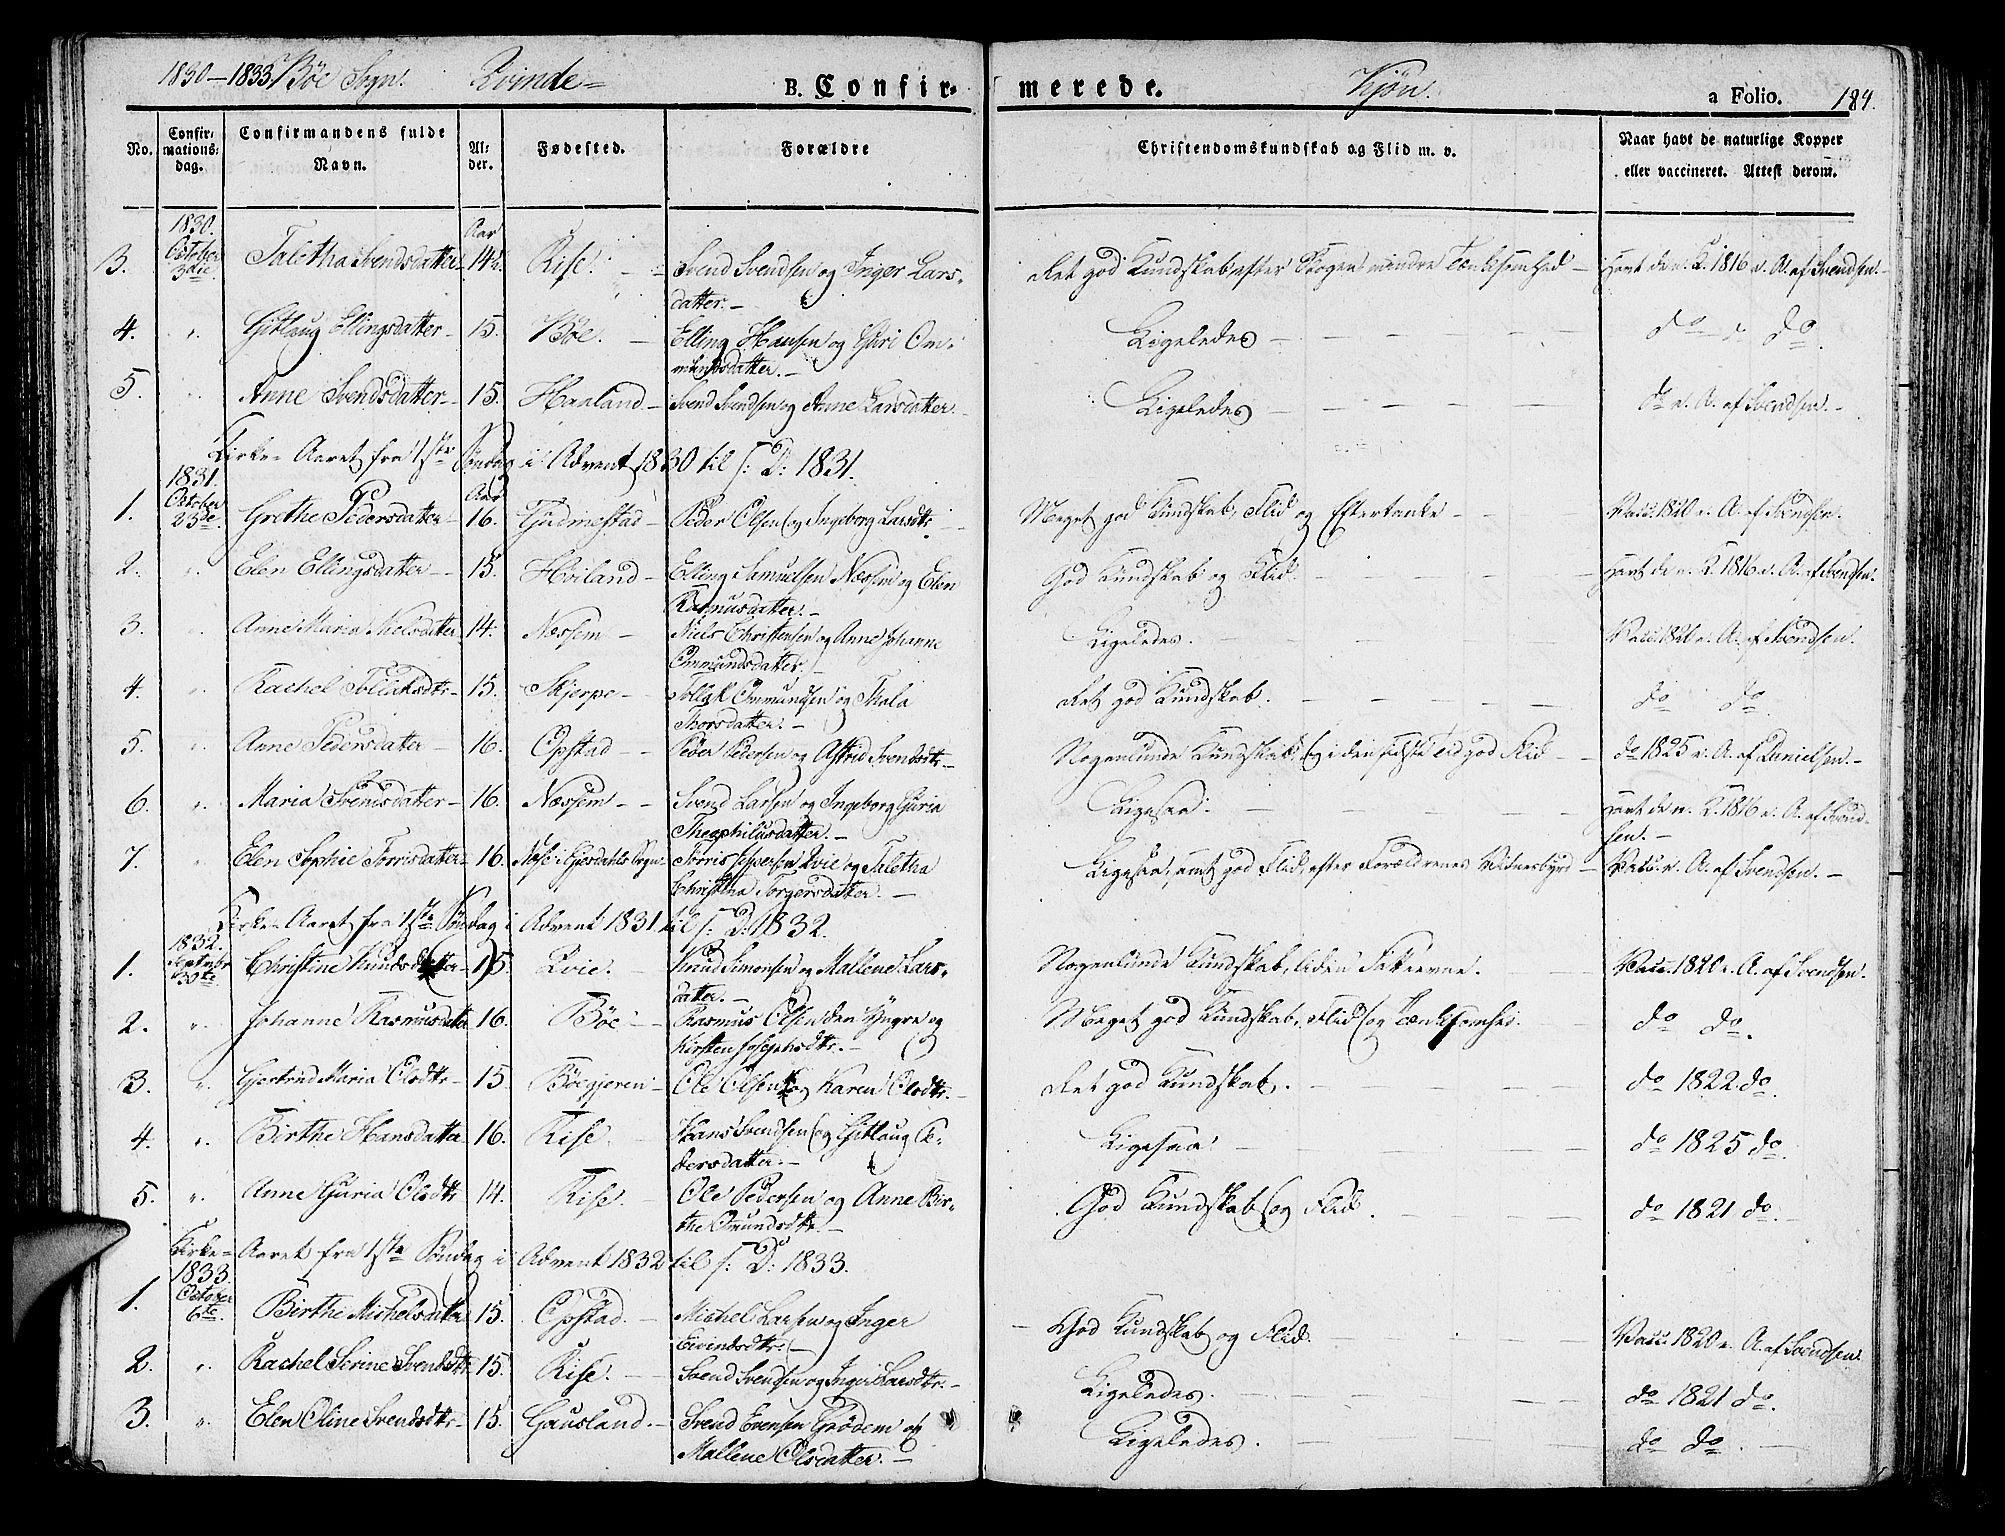 1830–1833 Böe Sogn. Qvinde= B. Confir= merede. Kjön. a Folio. 184.
No. Confir= mations= dag. Confirmandens fulde Navn. Al= der. Fødested. Forældre Christendomskundskab og Flid m. v. Naar havt de naturlige Kopper eller vaccineret. Attest derom.
1830. Aar
3. October 3die Taletha Svendsdatter 14½ Riise. Svend Svendsen og Inger Lars=
datter.– Ret god Kundskab, efter mindre Tænksomhed – Havt de n. K. 1816 v. A. af Svendsen.–
4. „ Gitlaug Ellingsdatter 15. Böe. – Elling Hansen og Guri Om=
mundsdatter.– Ligeledes – – – – do – do
5. „ Anne Svendsdatter 15. Haaland – Svend Svendsen og Anne Larsdatter. Ligeledes – – – – do v. A. af Svendsen.–
Kirke-Aaret fra 1ste Söndag i Advent 1830 til s: D: 1831.
1831. Aar
1. October 25de. Grethe Pedersdatter 16. Tjudmestad – Peder Olsen og Ingeborg Larsdtr. Meget god Kundskab, Flid og Eftertanke – – Vacc. 1820 v. A. af Svendsen.
2. „ Elen Ellingsdatter – 15. Hviland – Elling Samuelsen Næssem og Elen
Rasmusdatter.– God Kundskab og Flid. – – – Havt de n. K. 1816 v. A. af Svendsen.
3. „ Anne Maria Nielsdatter 14. Næssem – Niels Christensen og Anne Johanne
Ommundsdatter. Ligeledes. – – – Vacc. 1820 v. A. af Svendsen.
4. „ Rachel Tollaksdtr – 15. Skjerpe – Tollak Ommundsen og Thala
Thorsdatter.– Ret god Kundskab. – – – do do
5. „ Anne Pedersdatter – 16. Opstad – – Peder Pedersen og Astrid Svendsdtr – Nogenlunde Kundskab, og i den sidste Tid god Flid – do 1825 v. A. af Danielsen.–
6. „ Maria Svendsdatter – 16. Næssem – – Svend Larsen og Ingeborg Guria
Theophilusdatter.– Ligesaa. – – – Havt de n. K. 1816 v. A. af Svend=
sen.–
7. „ Elen Sophie Torrisdatter 16. Næse i Gjesdahls Sogn Torris Jespersen Qvie og Taletha
Christina Torgersdatter.– Ligesaa, samt god Flid, efter Forældrenes Vidnesbyrd – Vacc. v. A. af Svendsen.–
Kirke-Aaret fra 1ste Söndag i Advent 1831 til s: D: 1832.
1832.
1. Septembr 30te Christine Knudsdatter 15. Qvie. Knud Simonsen og Mallene Lars=
datter.– Nogenlunde Kundskab, liden Fatteevne. – Vacc. 1820 v. A. af Svendsen.
2. „ Johanne Rasmusdatter 16. Böe – Rasmus Olsen den Yngre og
Kirsten Josephsdtr.– Meget god Kundskab, Flid og Tænksomhed. do do.
3. „ Gjertrud Maria Olsdtr – 15. Böegjeren – Ole Olsen og Karen Olsdtr.– Ret god Kundskab. – – – do 1822. do.
4. „ Birthe Hansdatter 16. Riise. Hans Svendsen og Gitlaug Pe=
dersdatter.– Ligesaa – – – do 1825 do.
5. „ Anne Guria Olsdtr 14. Riise. – Ole Pedersen og Anne Bir=
the Omundsdtr.– God Kundskab og Flid. – – do 1821 do.–
Kirke=Aaret fra 1ste Söndag i Advent 1832 til s: D: 1833.
1833.
1. October 6te. Birthe Michelsdatter 15. Opstad. – Michel Larsen og Inger
Eivendsdtr.– God Kundskab og Flid. – – – Vacc. 1820 v. A. af Svendsen.
2. „ Rachel Serine Svendsdtr 15. Riise. – Svend Svendsen og Inger Larsdtr.– Ligeledes. – – – do 1821 do.
3. „ Elen Oline Svendsdtr 15. Gausland. – Svend Evensen Grödem og
Mallene Olsdatter.– Ligeledes. – – – do do.–